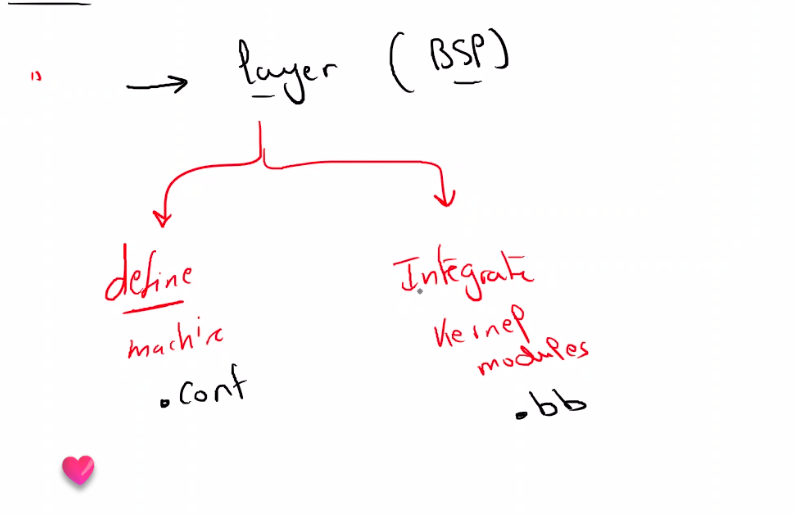 1)
→ layer (BSP)
define
machine
.conf
Integrate
Kernel
modules
.bb